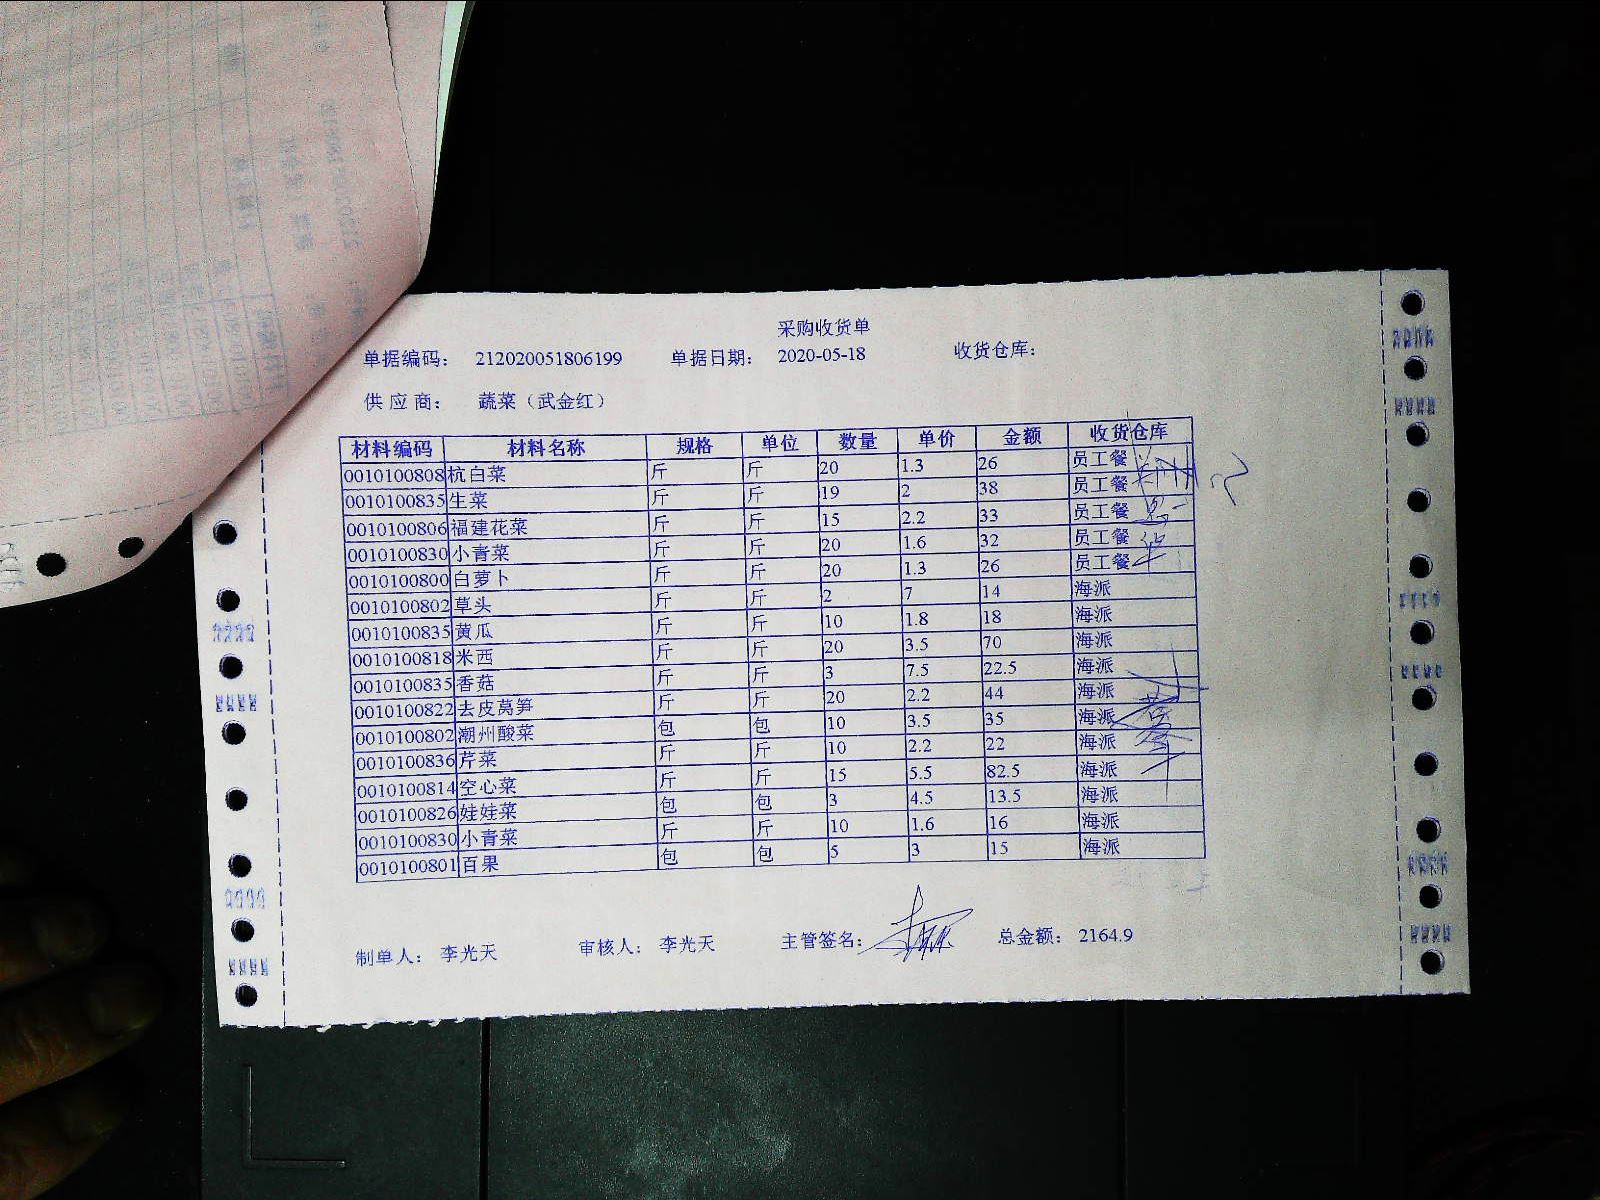 采购收货单
单据编码： 212020051806199 单据日期： 2020-05-18 收货仓库：
供应商： 蔬菜（武金红）
材料编码 材料名称 规格 单位 数量 单价 金额 收货仓库
0010100808 杭白菜 斤 斤 20 1.3 26 员工餐
0010100835 生菜 斤 斤 19 2 38 员工餐
0010100806 福建花菜 斤 斤 15 2.2 33 员工餐
0010100830 小青菜 斤 斤 20 1.6 32 员工餐
0010100800 白萝卜 斤 斤 20 1.3 26 员工餐
0010100802 草头 斤 斤 2 7 14 海派
0010100835 黄瓜 斤 斤 10 1.8 18 海派
0010100818 米西 斤 斤 20 3.5 70 海派
0010100835 香菇 斤 斤 3 7.5 22.5 海派
0010100822 去皮莴笋 斤 斤 20 2.2 44 海派
0010100802 潮州酸菜 包 包 10 3.5 35 海派
0010100836 芹菜 斤 斤 10 2.2 22 海派
0010100814 空心菜 斤 斤 15 5.5 82.5 海派
0010100826 娃娃菜 包 包 3 4.5 13.5 海派
0010100830 小青菜 斤 斤 10 1.6 16 海派
0010100801 百果 包 包 5 3 15 海派
制单人： 李光天 审核人： 李光天 主管签名： 总金额： 2164.9